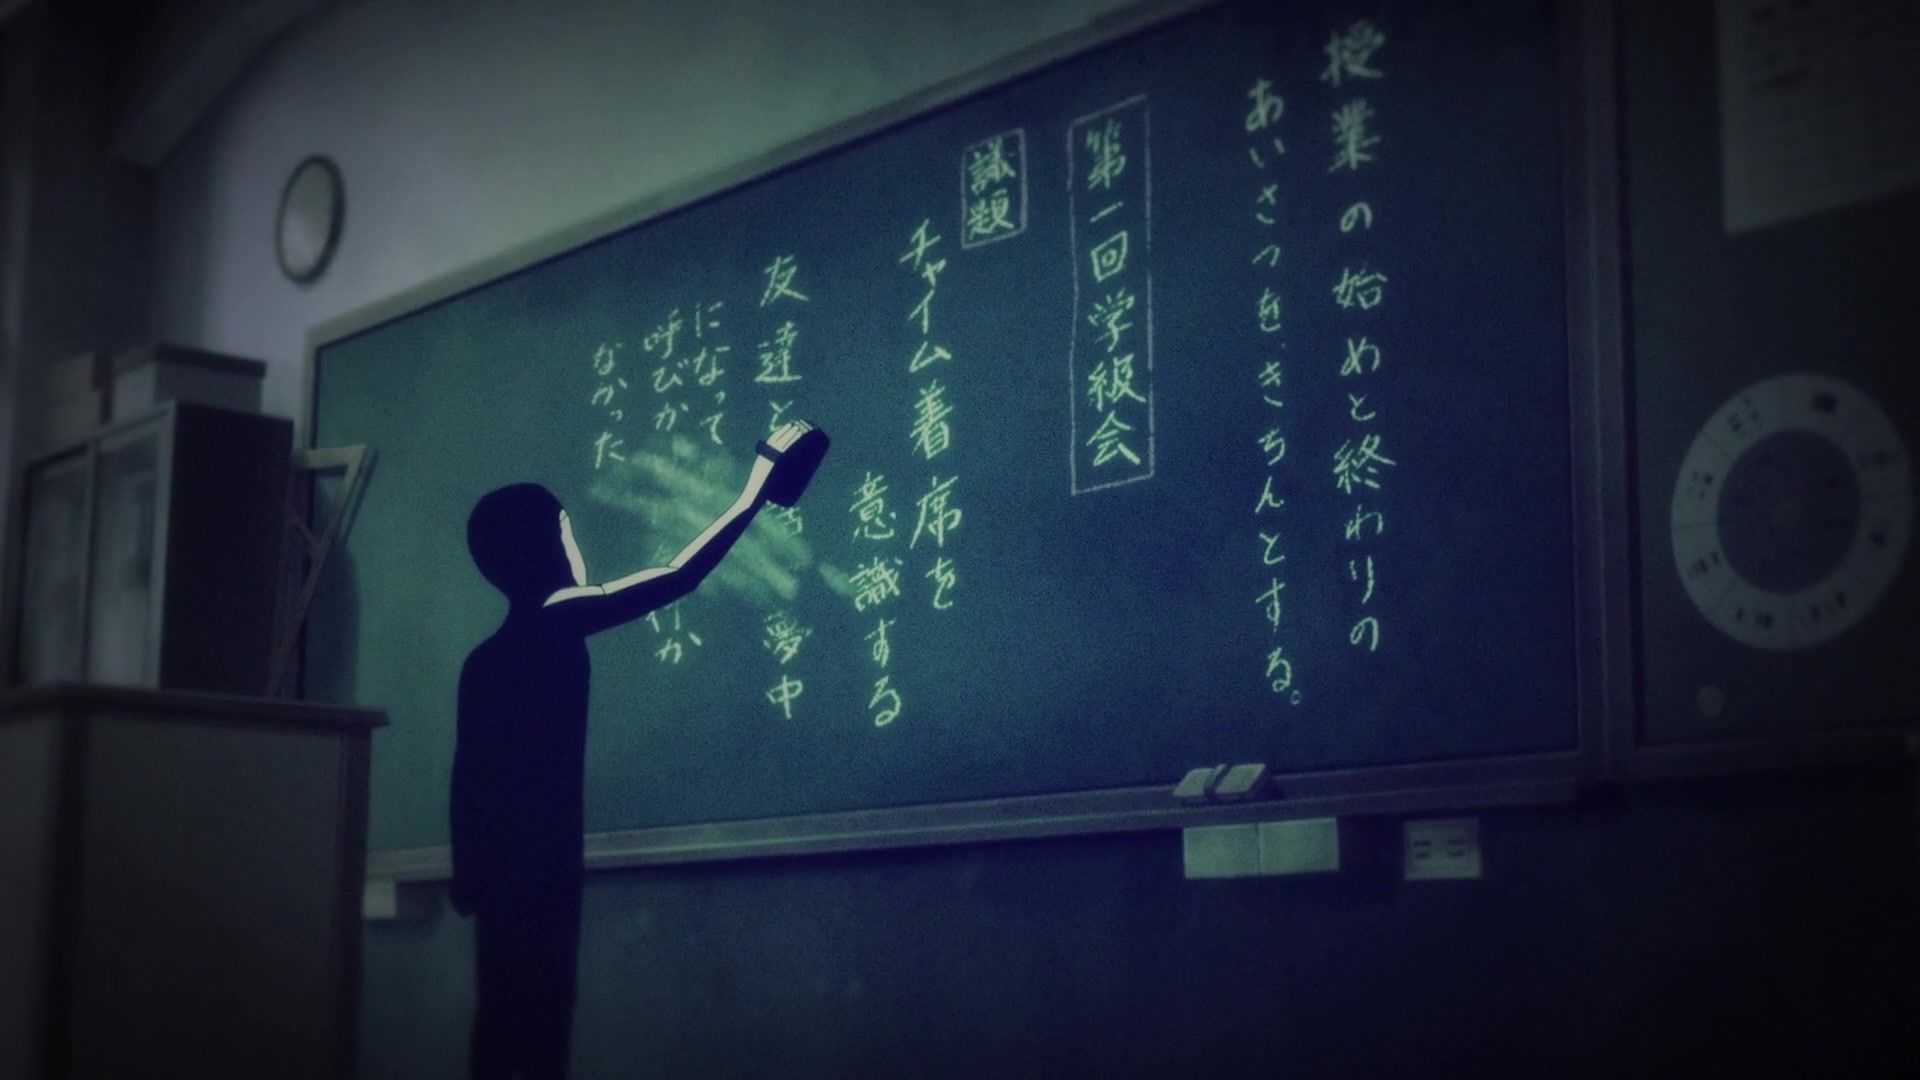 授業の始めと終わりの
あいさつをきちんとする。
第一回学級会
議題
チャイム着席を
意識する
友達と
夢中
になって
呼びか
行か
なかった